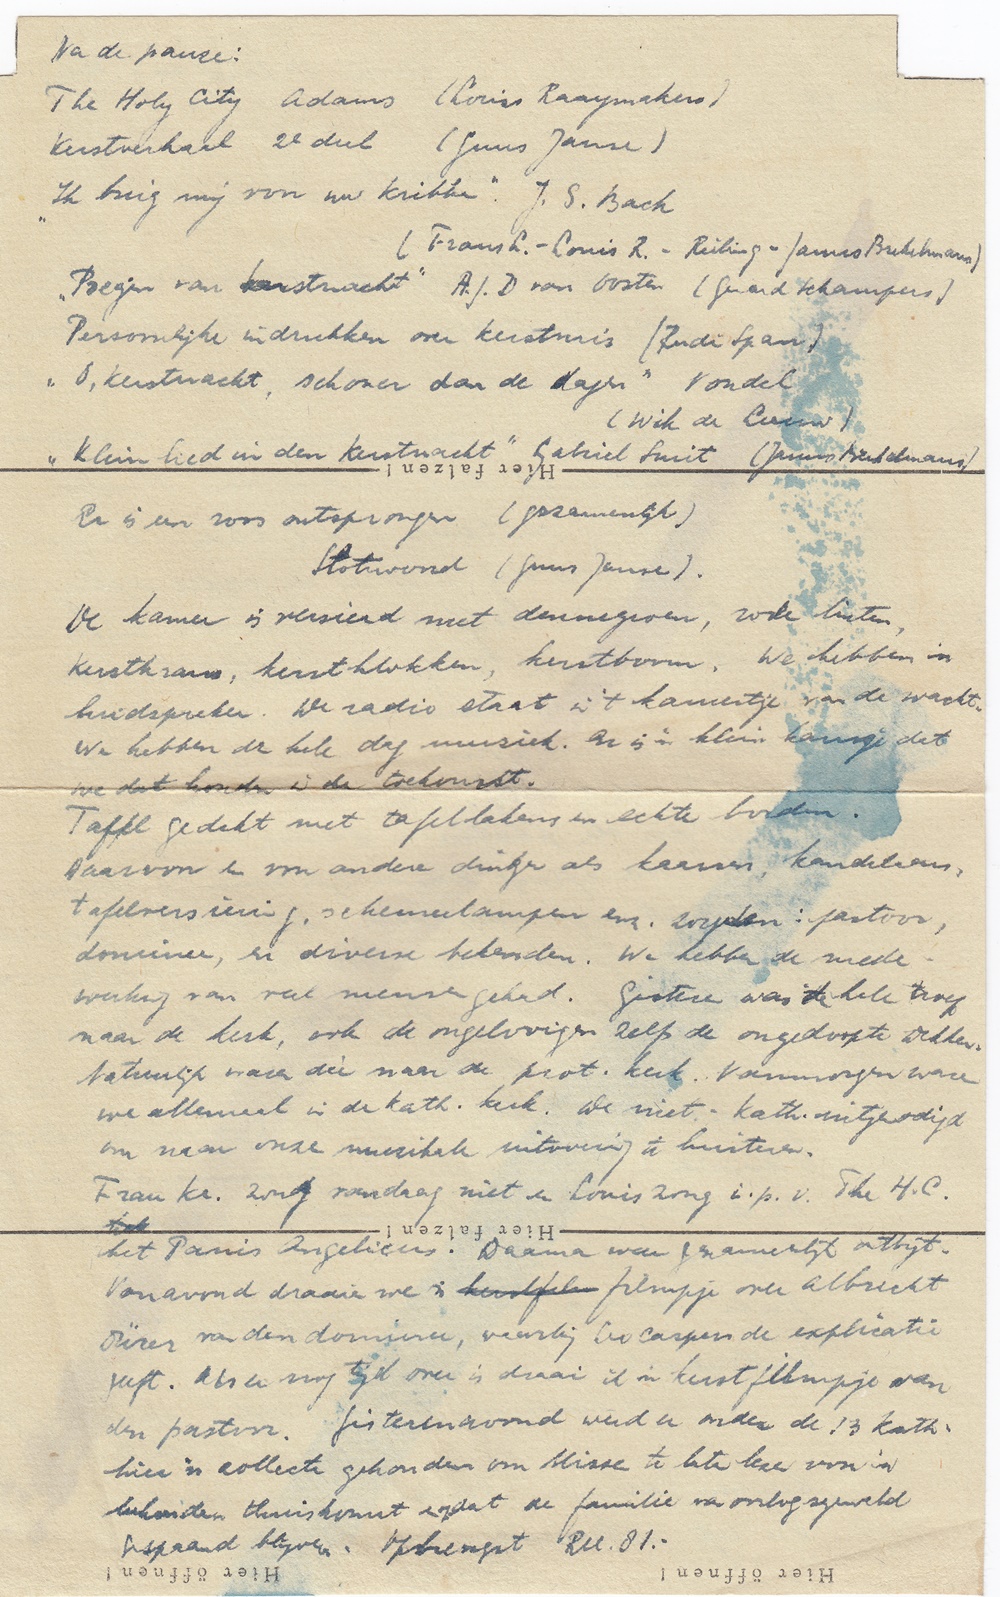 Na de pauze:
The Holy City Adams (Louis Raaymakers)
Kerstverhaal 2e deel (Guus Janse)
"Ik buig mij voor uw kribbe". J. S. Bach
(Frans L. - Louis R. - Reiling - Janus Brekelmans)
"Reegen van kerstnacht" A.J.D van Oosten (Gerard Schampers)
Persoonlijke indrukken over kerstmis (Rudi Span)
"O, Kerstnacht, schoner dan de dagen" Vondel
(Wik de Leeuw)
"Klein lied in den Kerstnacht" Gabriel Smit (Janus Brekelmans)
Hier falzen!
Er is een roos ontsprongen (gezamenlijk)
Slotwoord (Guus Janse).
De kamer is versierd met dennegroen, rode linten,
kerstkrans, kerstklokken, kerstboom. We hebben 'n
luidspreker. De radio staat in 't kamertje van de wacht.
We hebben de hele dag muziek. Er is 'n klein kansje dat
we dat houden in de toekomst.
Tafel gedekt met tafellakens en echte borden.
Daarvoor en voor andere dingen als kaarsen, kandelaars,
tafelversiering, schemerlampen enz. zorgden: pastoor,
dominee, en diverse bekenden. We hebben de mede-
werking van veel mensen gehad. Gisteren was de hele troep
naar de kerk, ook de ongelovigen zelfs de ongedoopte
Natuurlijk waren die naar de prot. kerk. Vanmorgen waren
we allemaal in de kath. kerk. De niet-kath. uitgenodigd
om naar onze muzikale uitvoering te luisteren.
Frans Ka. zong vandaag niet en Louis zong i.p.v. The H.C.
Hier falzen!
het Panis Angelicus. Daarna weer gezamenlijk ontbijt.
Vanavond draaien we 'n filmpje over Albrecht
Dürer van den dominee, waarbij Leo Caspers de explicatie
geeft. Als er nog tijd over is draai ik 'n kerstfilmpje van
den pastoor. Gisterenavond werd er onder de 13 kath.
hier 'n collecte gehouden om Missen te laten lezen voor 'n
behouden thuiskomst en dat de familie van oorlogsgeweld
gespaard blijven. Opbrengst RM. 81.-
Hier öffnen! Hier öffnen!